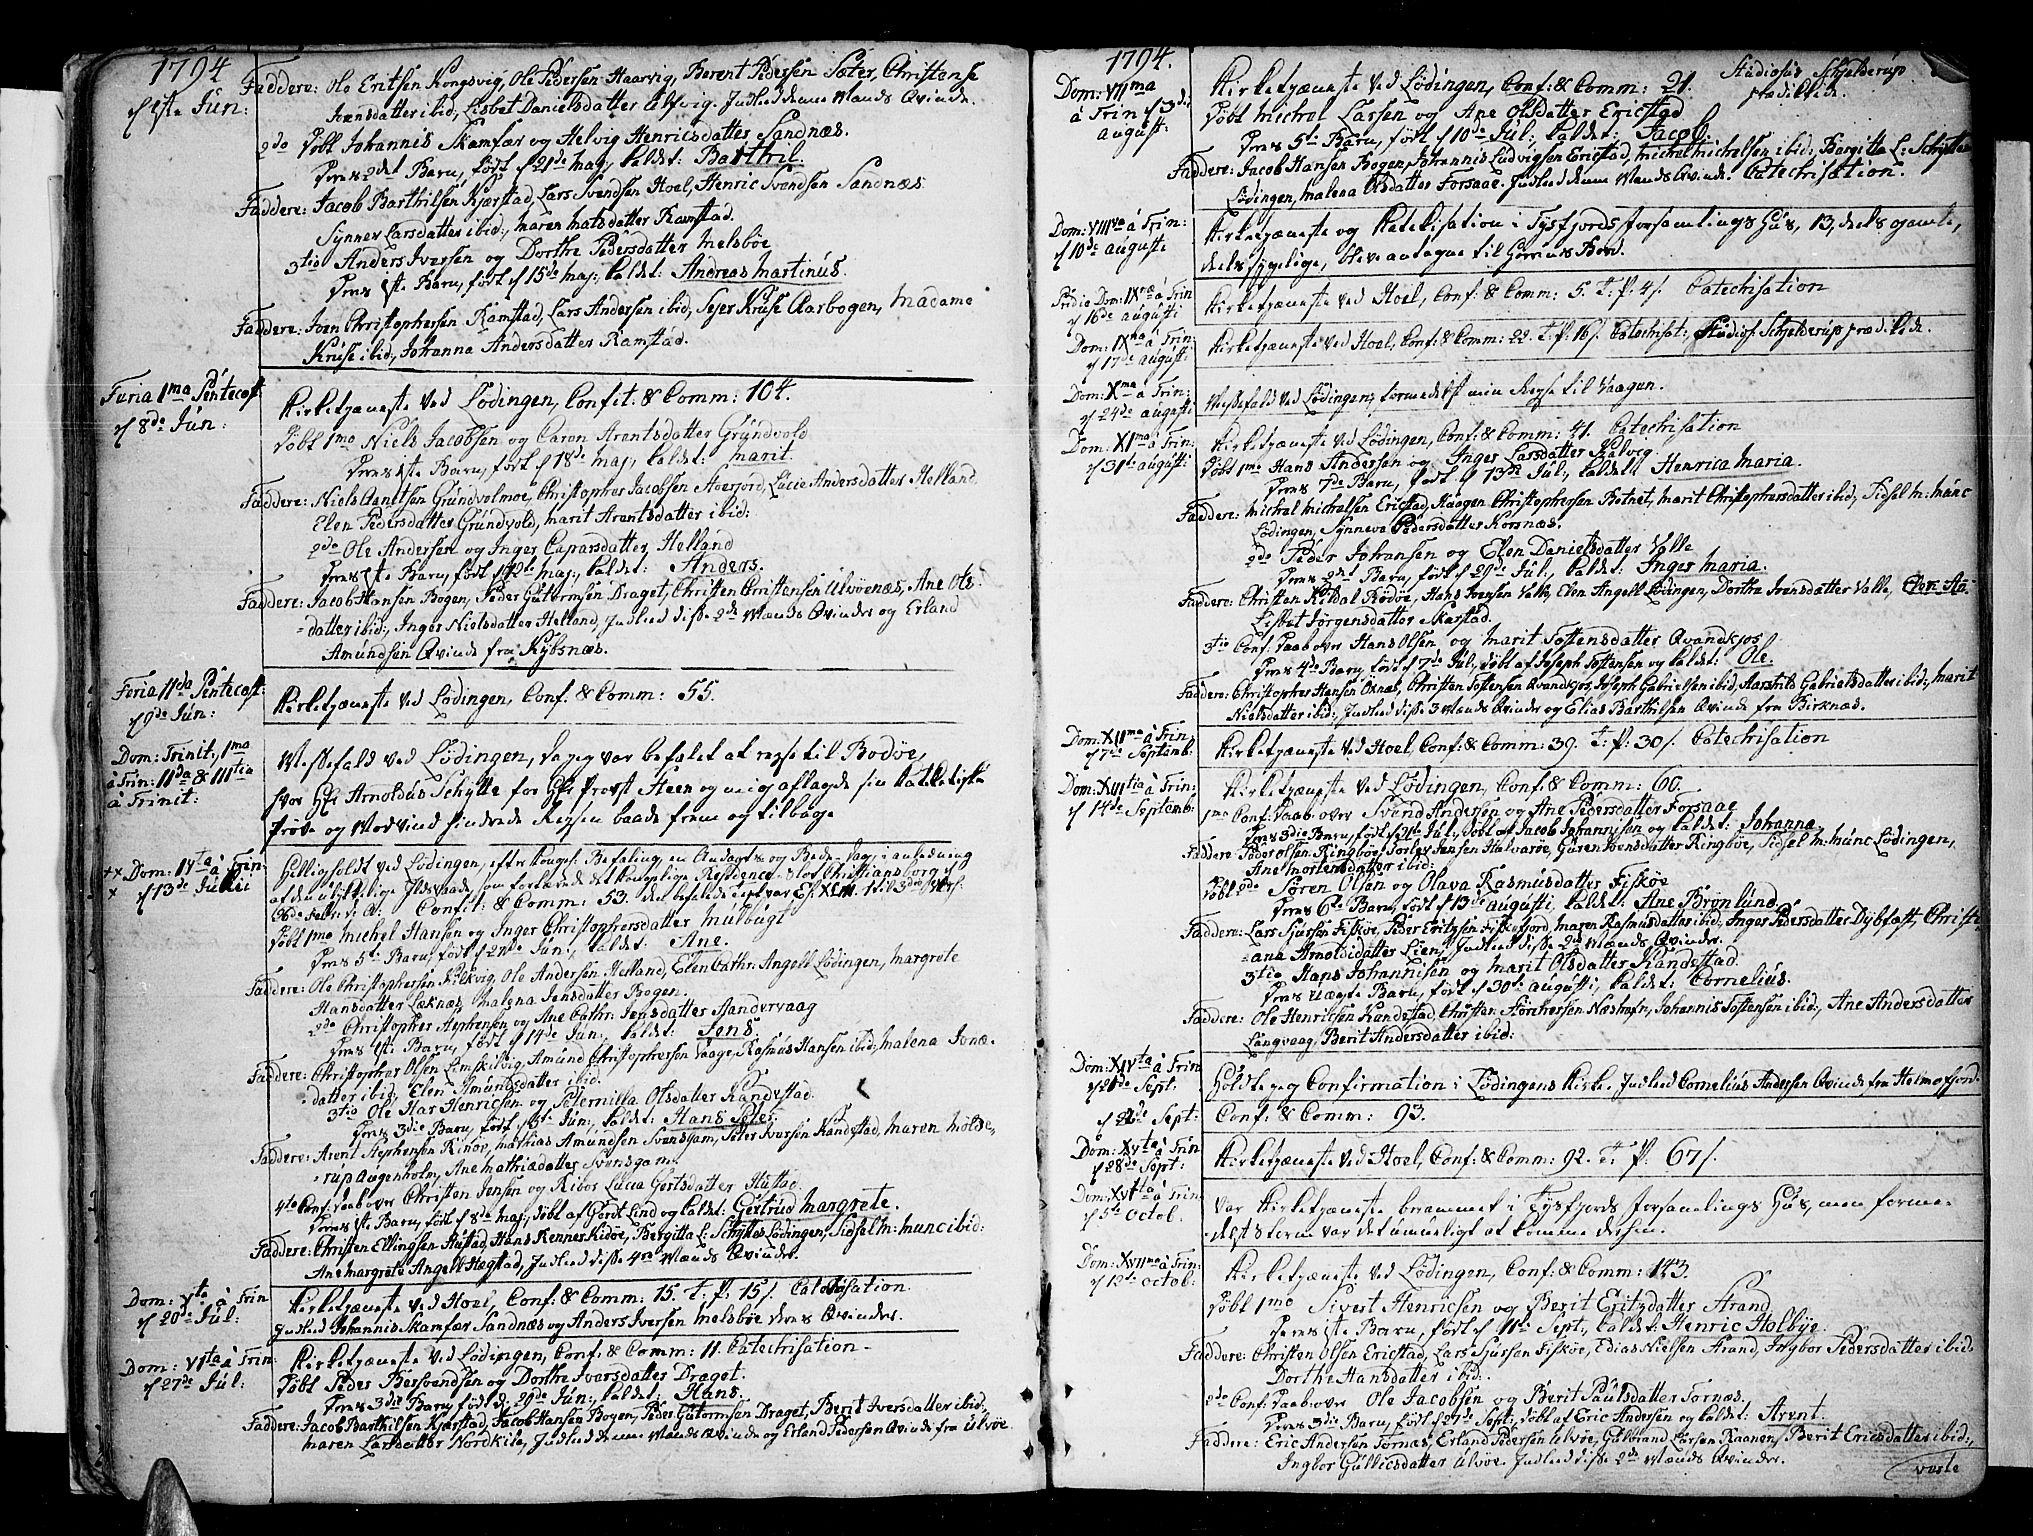 1794
d 1ste Jun:
Faddere: Ole Eritsen Kongsvig, Ole Pedersen Haarvig, Berent Pedersen Sæter, Christense
Ivensdatter ibid, Lisbet Danielsdatter Ulvig. Indled denne Mands Qvinde.
2do Døbt Johannis Skamfær og Helvig Henricsdatter Sandnæs.
Deres 2det Barn, født d 21de Maj, kaldet: Barthil.
Faddere: Jacob Barthilsen Kjærstad, Lars Svendsen Hoel, Henric Svendsen Sandnæs
Synner Larsdatter ibid:, Maren Matsdatter Ramstad.
3tio Anders Iversen og Dorthe Pedersdatter Melsböe
Deres 1ste Barn, født d 15de Maj, kaldet: Andreas Martinus.
Faddere: Joen Christophersen Ramstad, Lars Andersen ibid, Sejer Kruse Aarbogen, Madame
Kruse ibid, Johanna Andersdatter Ramstad.
Feria 1ma Pentecost
d 8de Jun:
Kirketjæneste ved Lödingen, Confit. & Comm: 104.
Døbt 1mo Niels Jacobsen og Caren Arentsdatter Grundvold
Deres 1ste Barn, født d 18de Maj, kaldet: Marit.
Faddere: Niels Arntsen Grundvolmoe, Christopher Jacobsen Stoerjord, Lucie Andersdatter Helland
Elen Pedersdatter Grundvold, Marit Arentsdatter ibid:
2do Ole Andersen og Inger Caparsdatter Helland
Deres 1ste Barn, født d 12de Maj, kaldet: Anders.
Faddere: Jacob Hansen Bogen, Peder Gutormsen Draget, Christen Christensen Ulvöenæs, Ane Ols-
datter ibid:, Inger Nielsdatter Helland, Indled disse 2de Mænds Qvinder og Erland
Amundsen Qvinde fra Kybsnæs.
Feria IIda Pentecost:
d 9de Jun:
Kirketjæneste ved Lödingen, Conf. & Comm: 55.
Dom: Trinit, 1ma
à Trin: IIda & IIItia
à Trinit:
Messefald ved Lödingen, da jeg var befalet at rejse til Bodöe,
hvor Hr Arnoldus Schytte for Hr Provst Steen og mig aflagde sin Catechetiske
Pröve og Modvind hindrede Rejsen baade frem og tilbage.
Dom: IVta à Trin:
d 13de Julii
Helligholdt ved Lödingen, efter kongel: Befaling, en Andagts og Bede-Dag, i anledning
af den ulykkelige Ildsvaade, som fortærede det kongelige Residence-Slot Christiansborg d
26de Febr: Confit: & Comm: 53. den befalede text var Es: XLIII. 1 til 3die Vers.
Døbt 1mo Michel Hansen og Inger Christophersdatter Mulbugt
Deres 5te Barn, født d 22de Jun:, kaldet: Ane.
Faddere: Ole Christophersen Kilkvig, Ole Andersen Helland, Elen Cathr: Angell Lödingen, Margrete
Hansdatter Læknæs, Malena Jensdatter Bogen.
2do Christopher Stephensen og Ane Cathr: Jensdatter Sandervaag
Deres 1ste Barn, født d 14de Jun:, kaldet: Jens.
Faddere: Christopher Olsen Limskilvig, Amund Christophersen Vaage, Rasmus Hansen ibid:, Malena Jonæ-
datter ibid, Elen Amundsdatter ibid.
3tio Ole Har Henricsen og Peternilla Olsdatter Kandestad.
Deres 3die Barn, født d 8de Jun:, kaldet: Hans Peter.
Faddere: Arent Stephensen Rinöe, Mathias Amundsen Svensgam, Peter Iversen Kandestad, Maren Holde-
rup Augenholm, Ane Mathiædatter Svensgam.
4to Conf: Daab over Christen Jensen og Kibor Lucia Gertsdatter Hustad
Deres 1ste Barn, født d 8de Maj:, døbt af Gerdt Lind og kaldet: Gertrud Margrete.
Faddere: Christen Ellingsen Hustad, Hans Renner Kidöe, Bergitta L: Schyttes Lödingen, Sidsel M: Munc ibid:
Ane Margrete Angell Hægstad, Indled disse 4re Mænds Qvinder.
Dom: Vta à Trin
d 20de Jul:
Kirketjæneste ved Hoel, Conf: & Comm: 15. T. P. 15/. Catechisation.
Indled Johannis Skamfær Sandnæs og Anders Iversen Melsböe deres Qvinder.
Dom: VIta à Trin:
d 27de Jul:
Kirketjæneste ved Lödingen, Conf: & Comm: 11. Catechisation-
Døbt Peder Bersvendsen og Dorthe Iversdatter Draget.
Deres 3die Barn, født d 29de Jun:, kaldet: Hans.
Faddere: Jacob Barthilsen Kjærstad, Jacob Hansen Bogen, Peder Gutormsen Draget, Berit Iversdatter ibid:,
Maren Larsdatter Nordkile, Indled denne Mands Qvinde og Erland Pedersen Qvinde fra Ulvöe
1794.
Dom: VIIma
à Trin d 3die
augusti:
Kirketjæneste ved Lödingen, Conf: & Comm: 21. Studiosus Schjelderup
prædikede.
Døbt Michel Larsen og Ane Olsdatter Ericstad
Deres 5te Barn, født d 10de Jul:, kaldet: Jacob.
Faddere: Jacob Hansen Bogen, Johannis Ludvigsen Ericstad, Michel Michelsen ibid:, Bergitta L: Schyttes
Lödingen, Malena Olsdatter Forsaae. Indled denne Mands Qvinde. Catechisation.
Dom: VIIIva à Trin:
d 10de augusti
Kirketjæneste og Katekisation i Tysfjords Forsamlings Huus, 13, deels gamle,
deels sygelige, bleve antagne til Herrens Bord.
Pridie Dom: IXnæ à Trin
d 16de augusti
Kirketjæneste ved Hoel, Conf: & Comm: 5. T. P. 4/. Catechisation
Dom: IXna à Trin
d 17de augusti:
Kirketjæneste ved Hoel, Conf: & Comm: 22. T. P. 16/. Catechisat:, Studios: Schjelderup prædikede.
Dom: Xma à Trin:
d 24de augusti
Messefald ved Lödingen, formedelst min Rejse til Vaagen.
Dom: XIma à Trin:
d 31te augusti:
Kirketjæneste ved Lödingen, Conf: & Comm: 41. Catechisation
Døbt 1mo Hans Andersen og Inger Larsdatter Kalvig.
Deres 7de Barn, født d 13de Jul:, kaldet: Henrica Maria.
Faddere: Michel Michelsen Ericstad, Haagen Christophersen Botnet, Marit Christophersdatter ibid:, Sidsel M: Munc
Lödingen, Synneva Pedersdatter Korsnæs.
2do Peder Johansen og Elen Danielsdatter Valle
Deres 2det Barn, født d 29de Jul:, kaldet: Inger Maria.
Faddere: Christen Kildal Rödöe, Hans Ivensen Valle, Elen Angell Lödingen, Dorthe Ivensdatter Valle,
Lisbet Jörgensdatter Skarstad.
3tio Conf: Daab over Hans Olsen og Marit Tostensdatter Qvandkjos
Deres 4de Barn, født d 7de Jul:, døbt af Joseph Tostensen og kaldet: Ole.
Faddere: Christopher Hansen Oxnæs, Christen Tostensen Qvandkjos, Joseph Gabrielsen ibid, Aarstild Gabrielsdatter ibid:, Marit
Nielsdatter ibid:, Indled disse 3 Mænds Qvinder og Elias Barthilsen Qvinde fra Birknæs.
Dom: XIIma à Trin:
d 7de Septemb:
Kirketjæneste ved Hoel, Conf: & Comm: 39. T: P: 30/. Catechisation
Dom: XIIItia à Trin:
d 14de Septemb:
Kirketjæneste ved Lödingen, Conf: & Comm: 60.
1mo Conf: Daab over Svend Andersen og Ane Pedersdatter Forsaae
Deres 3die Barn, født d 21de Jul:, døbt af Jacob Johannisen og kaldet: Johanna.
Faddere: Peder Olsen Ringböe, Torlev Jensen Halvaröe, Guren Svensdatter Ringböe, Sidsel M: Munc Lödingen,
Ane Mortensdatter ibid:
Døbt 2do Sören Olsen og Olava Rasmusdatter Fiskøe
Deres 6te Barn, født d 13de augusti, kaldet: Ane Brönlund.
Faddere: Lars Sjursen Fiskøe, Peder Eritzsen Fiskefjord, Maren Rasmusdatter ibid:, Inger Pedersdatter Dybfæst, Christi-
ana Arnoldidatter Lien, Indled disse 2de Mænds Qvinder.
3tio Hans Johannisen og Marit Olsdatter Kandestad
Deres uægte Barn, født d 30te augusti, kaldet: Cornelius.
Faddere: Ole Henricsen Kandestad, Christen Störkersen Næshafn, Johannis Tostensen ibid:, Ane Andersdatter
Langvaag, Berit Andersdatter ibid:
Dom: XIVta à Trin:
d 21de Sept:
Holdte jeg Confirmation i Lödingens Kirke. Indled Cornelius Andersen Qvinde fra Helmofjord.
d 22de Sept:
Conf: & Comm: 93.
Dom: XVta à Trin:
d 28de Sept:
Kirketjæneste ved Hoel, Conf: & Comm: 92. T: P: 67/.
Dom: XVIta à Trin:
d 5te Octob.
Var Kirketjæneste berammet i Tysfjords Forsamlings Huus, men forme-
delst Storm var det umueligt at komme derhen.
Dom: XVIIma à Trin:
d 12te Octob:
Kirketjæneste ved Lödingen, Conf: & Comm: 143.
Døbt 1mo Sivert Henricsen og Berit Eritzdatter Strand
Deres 1ste Barn, født d 11te Sept:, kaldet: Henric Holböe.
Faddere: Christen Olsen Ericstad, Lars Sjursen Fiskøe, Edias Nielsen Strand, Ingbor Pedersdatter ibid.
Dorthe Hansdatter ibid:
2do Conf: Daab over Ole Jacobsen og Berit Paulsdatter Tornæs,
Deres 3die Barn, født d 27de Sept:, døbt af Eric Andersen og kaldet: Arent.
Faddere: Eric Andersen Tornæs, Erland Pedersen Ulvøe, Gulbrand Larsen Kaanen, Berit Ericsdatter ibid:,
Ingbor Gullicsdatter Ulvøe. Indled disse 2de Mænds Qvinder.
verte